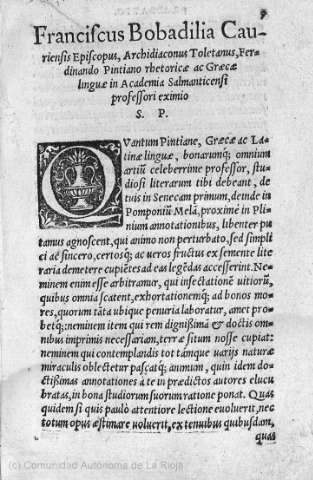 Franciscus Bobadilia Cau-
riensis Episcopus, Archidiaconus Toletanus, Fer-
dinando Pintiano rhetoricæ ac Græcæ
linguæ in Academia Salmanticensi
professori eximio
S. P.
QVantum Pintiane, Græcæ ac La-
tinæ linguæ, bonarumq; omnium
artiũ celeberrime professor, stu-
diosi literarum tibi debeant, de
tuis in Senecam primum, deinde in
Pomponiũ Melã, proximè in Pli-
nium annotationibus, libenter pu
tamus agnoscent, qui animo non perturbato, sed simpli
ci ac sincero, certosq; ac veros fructus ex semente lite
raria demetere cupiẽtes ad eas legẽdas accesserint. Ne
minem enim esse arbitramur, qui insectationẽ uitiorũ,
quibus omnia scatent, exhortationemq; ad bonos mo
res, quorum tãta ubique penuria laboratur, amet pro
betq;: neminem item qui rem dignissimã & doctis om
nibus imprimis necessariam, terræ situm nosse cupiat:
neminem qui contemplandis tot támque uarijs naturæ
miraculis oblectetur pascatq; animum, quin idem do-
ctissimas annotationes à te in prædictos autores elucu
bratas, in bona studiorum suorum ratione ponat. Quas
quidem si quis paulò attentiore lectione euoluerit, nec
totum opus æstimare uoluerit, ex tenuibus quibusdam,
quas
(c) Comunidad Autónoma de La Rioja